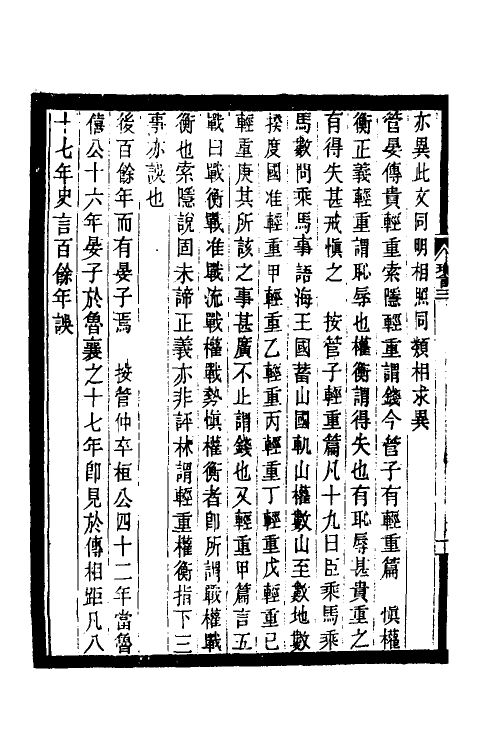 亦異此文同明相照同類相求異
管晏傳貴輕重索隱輕重謂錢今管子有輕重篇　慎權
衡正義輕重謂恥辱也權衡謂得失也有恥辱甚貴重之
有得失甚戒慎之　按管子輕重篇凡十九曰臣乘馬乘
馬數問乘馬事語海王國蓄山國軌山權數山至數地數
揆度國准輕重甲輕重乙輕重丙輕重丁輕重戊輕重己
輕重庚其所該之事甚廣不止謂錢也又輕重甲篇言五
戰曰戰衡戰准戰流戰權戰勢慎權衡者卽所謂戰權戰
衡也索隱說固未諦正義亦非評林謂輕重權衡指下三
事亦誤也
後百餘年而有晏子焉　按管仲卒桓公四十二年當魯
僖公十六年晏子於魯襄之十七年卽見於傳相距凡八
十七年史言百餘年誤